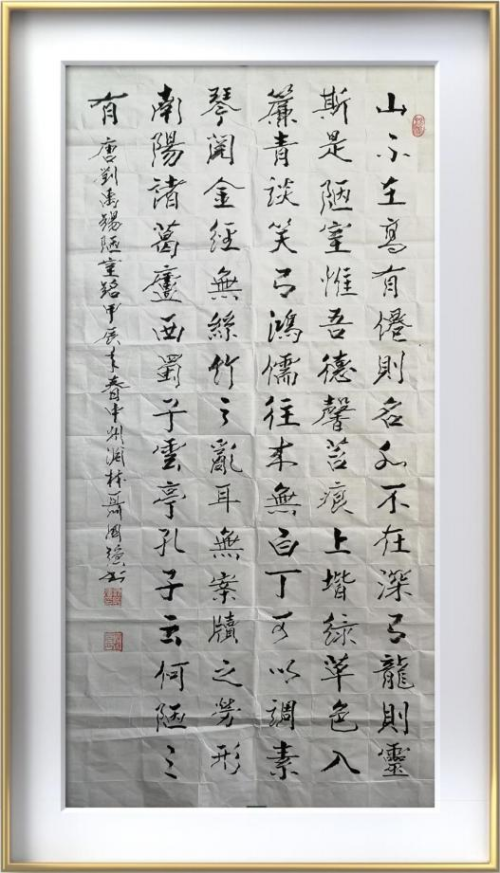 山不在高有僊則名水不在深有龍則靈
斯是陋室惟吾德馨苔痕上堦綠草色入
簾青談笑有鴻儒往來無白丁可以調素
琴閱金經無絲竹之亂耳無案牘之勞形
南陽諸葛廬西蜀子雲亭孔子云何陋之
有 唐劉禹錫陋室銘甲辰季春中州林聶國書